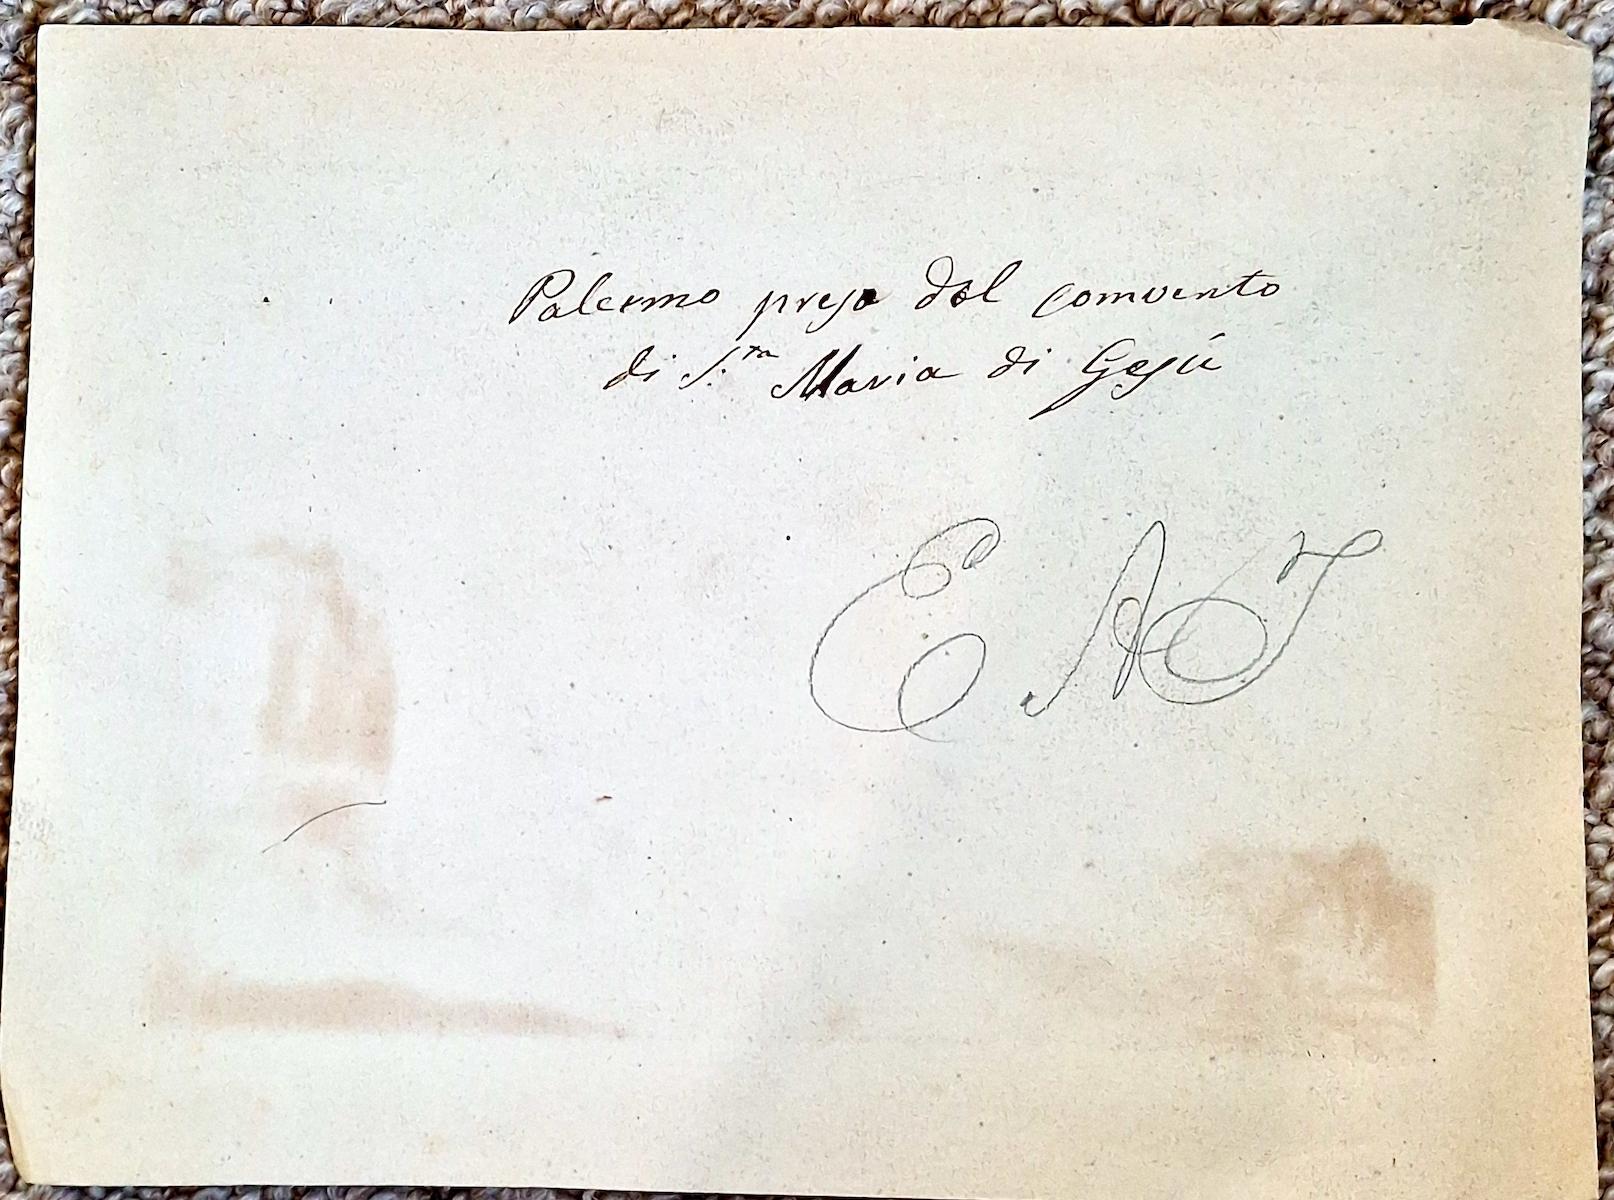 Palermo preso dal comvento
di S.ta Maria di Gesú
E A T